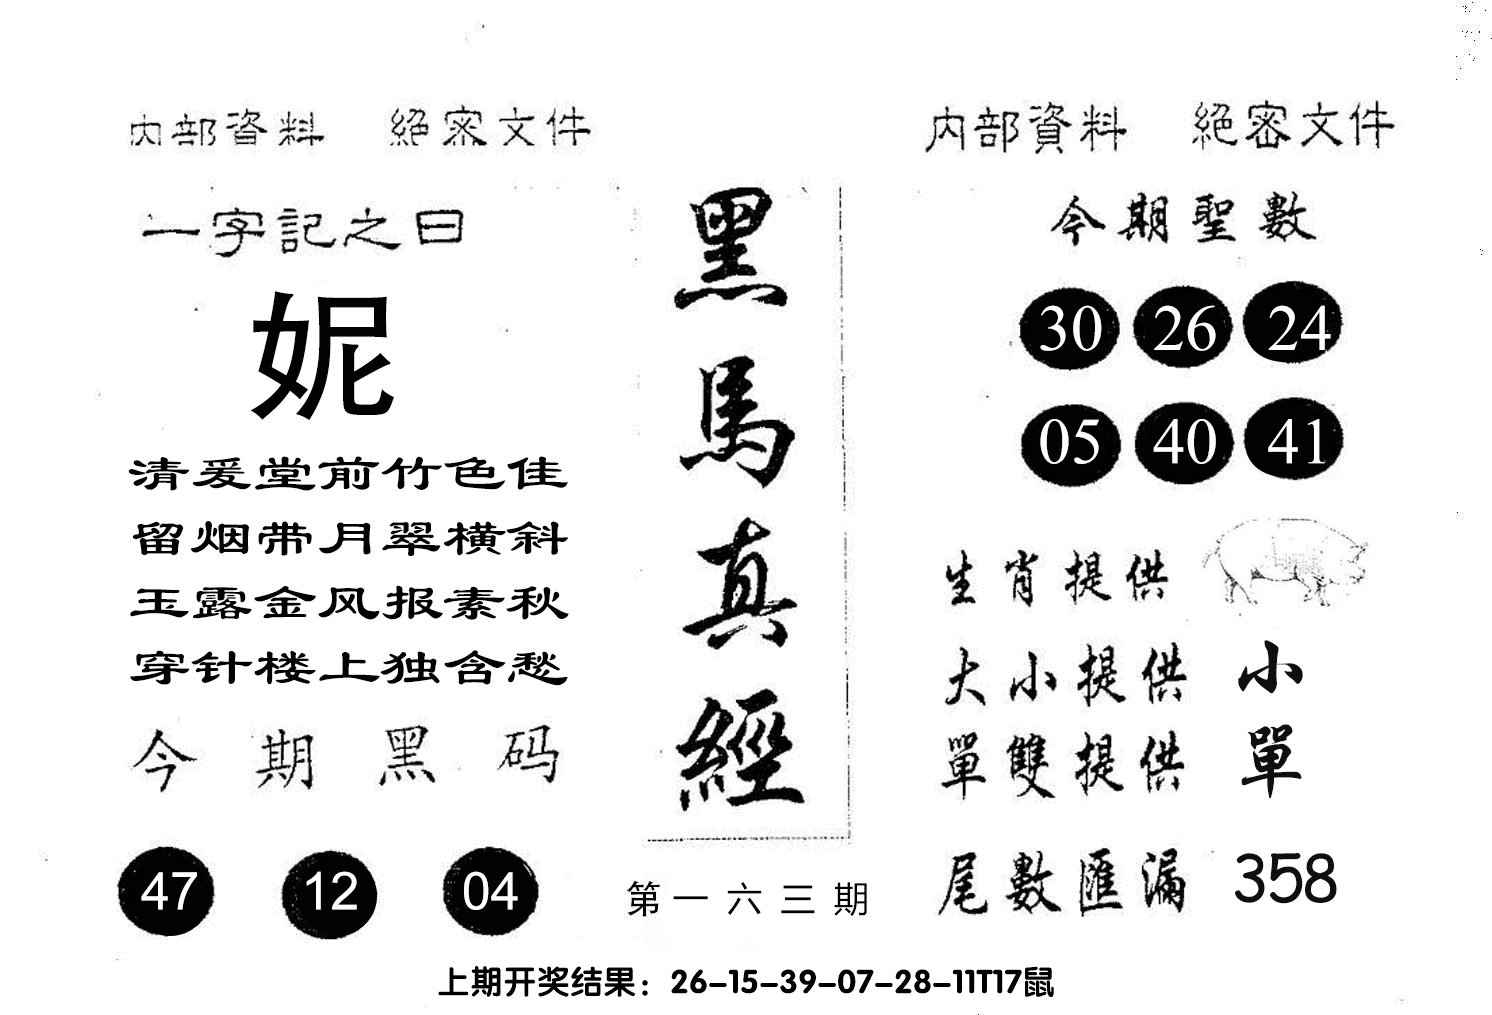 内部資料 絕密文件
一字記之曰
妮
清爰堂前竹色佳
留烟带月翠横斜
玉露金风报素秋
穿针楼上独含愁
今期黑码
47 12 04
黑馬真經
第一六三期
内部資料 絕密文件
今期聖數
30 26 24
05 40 41
生肖提供
大小提供 小
單雙提供 單
尾數匯漏 358
上期开奖结果：26-15-39-07-28-11T17鼠